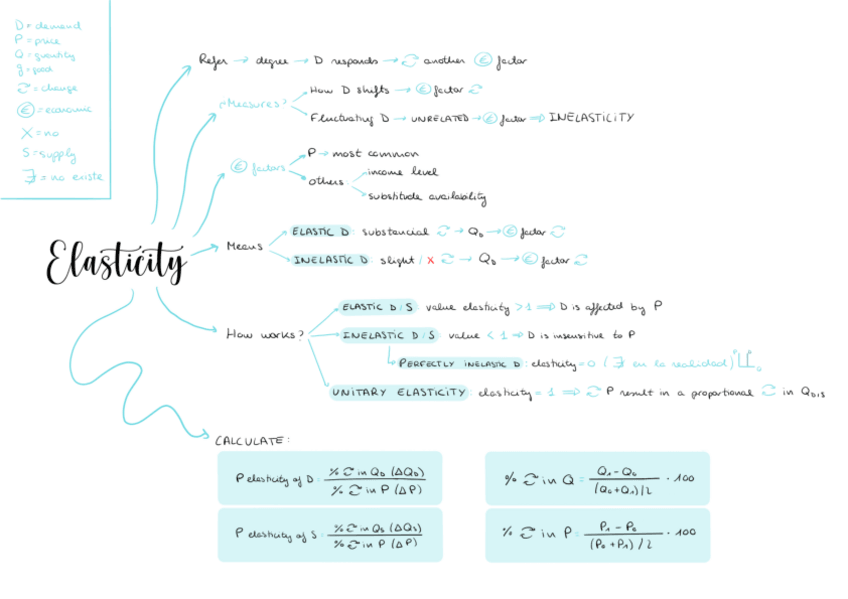 D = demand
P = price
Q = quantity
g = good
⥂ = change
€ = economic
X = no
S = supply
∄ = no existe
Elasticity
Refer → degree → D responds → ⥂ another € factor
Measures?
How D shifts → € factor ⥂
Fluctuating D → UNRELATED → € factor ⇒ INELASTICITY
€ factors
P → most common
others
income level
substitude availability
Means
ELASTIC D: substancial ⥂ → QD → € factor ⥂
INELASTIC D: slight / X ⥂ → QD → € factor ⥂
How works?
ELASTIC D/S value elasticity > 1 ⇒ D is affected by P
INELASTIC D/S: value < 1 ⇒ D is insensitive to P
PERFECTLY INELASTIC D: elasticity = 0 (∄ en la realidad)
UNITARY ELASTICITY: elasticity = 1 ⇒ ⥂ P result in a proportional ⥂ in QD/S
CALCULATE:
P elasticity of D: % ⥂ in QD (ΔQD) / % ⥂ in P (ΔP)
% ⥂ in Q = Q1 - Q0 / (Q0 + Q1)/2 · 100
P elasticity of S: % ⥂ in QS (ΔQS) / % ⥂ in P (ΔP)
% ⥂ in P = P1 - P0 / (P0 + P1)/2 · 100